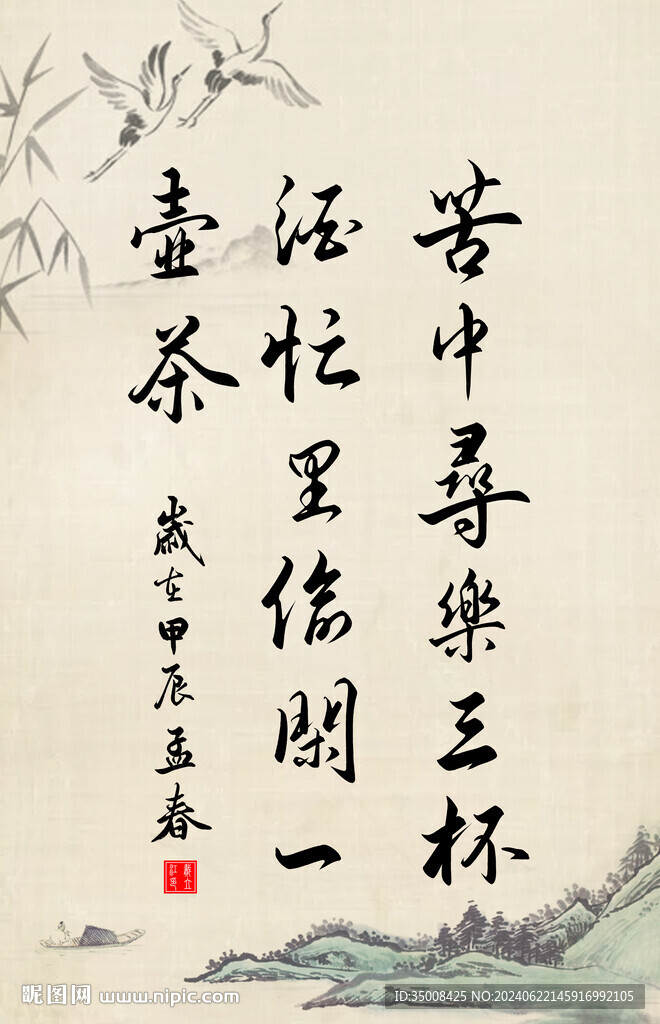 苦中尋樂三杯
酒忙里偷閑一
壺茶
歲在甲辰孟春
昵图网 www.nipic.com
ID:35008425 NO:20240622145916992105